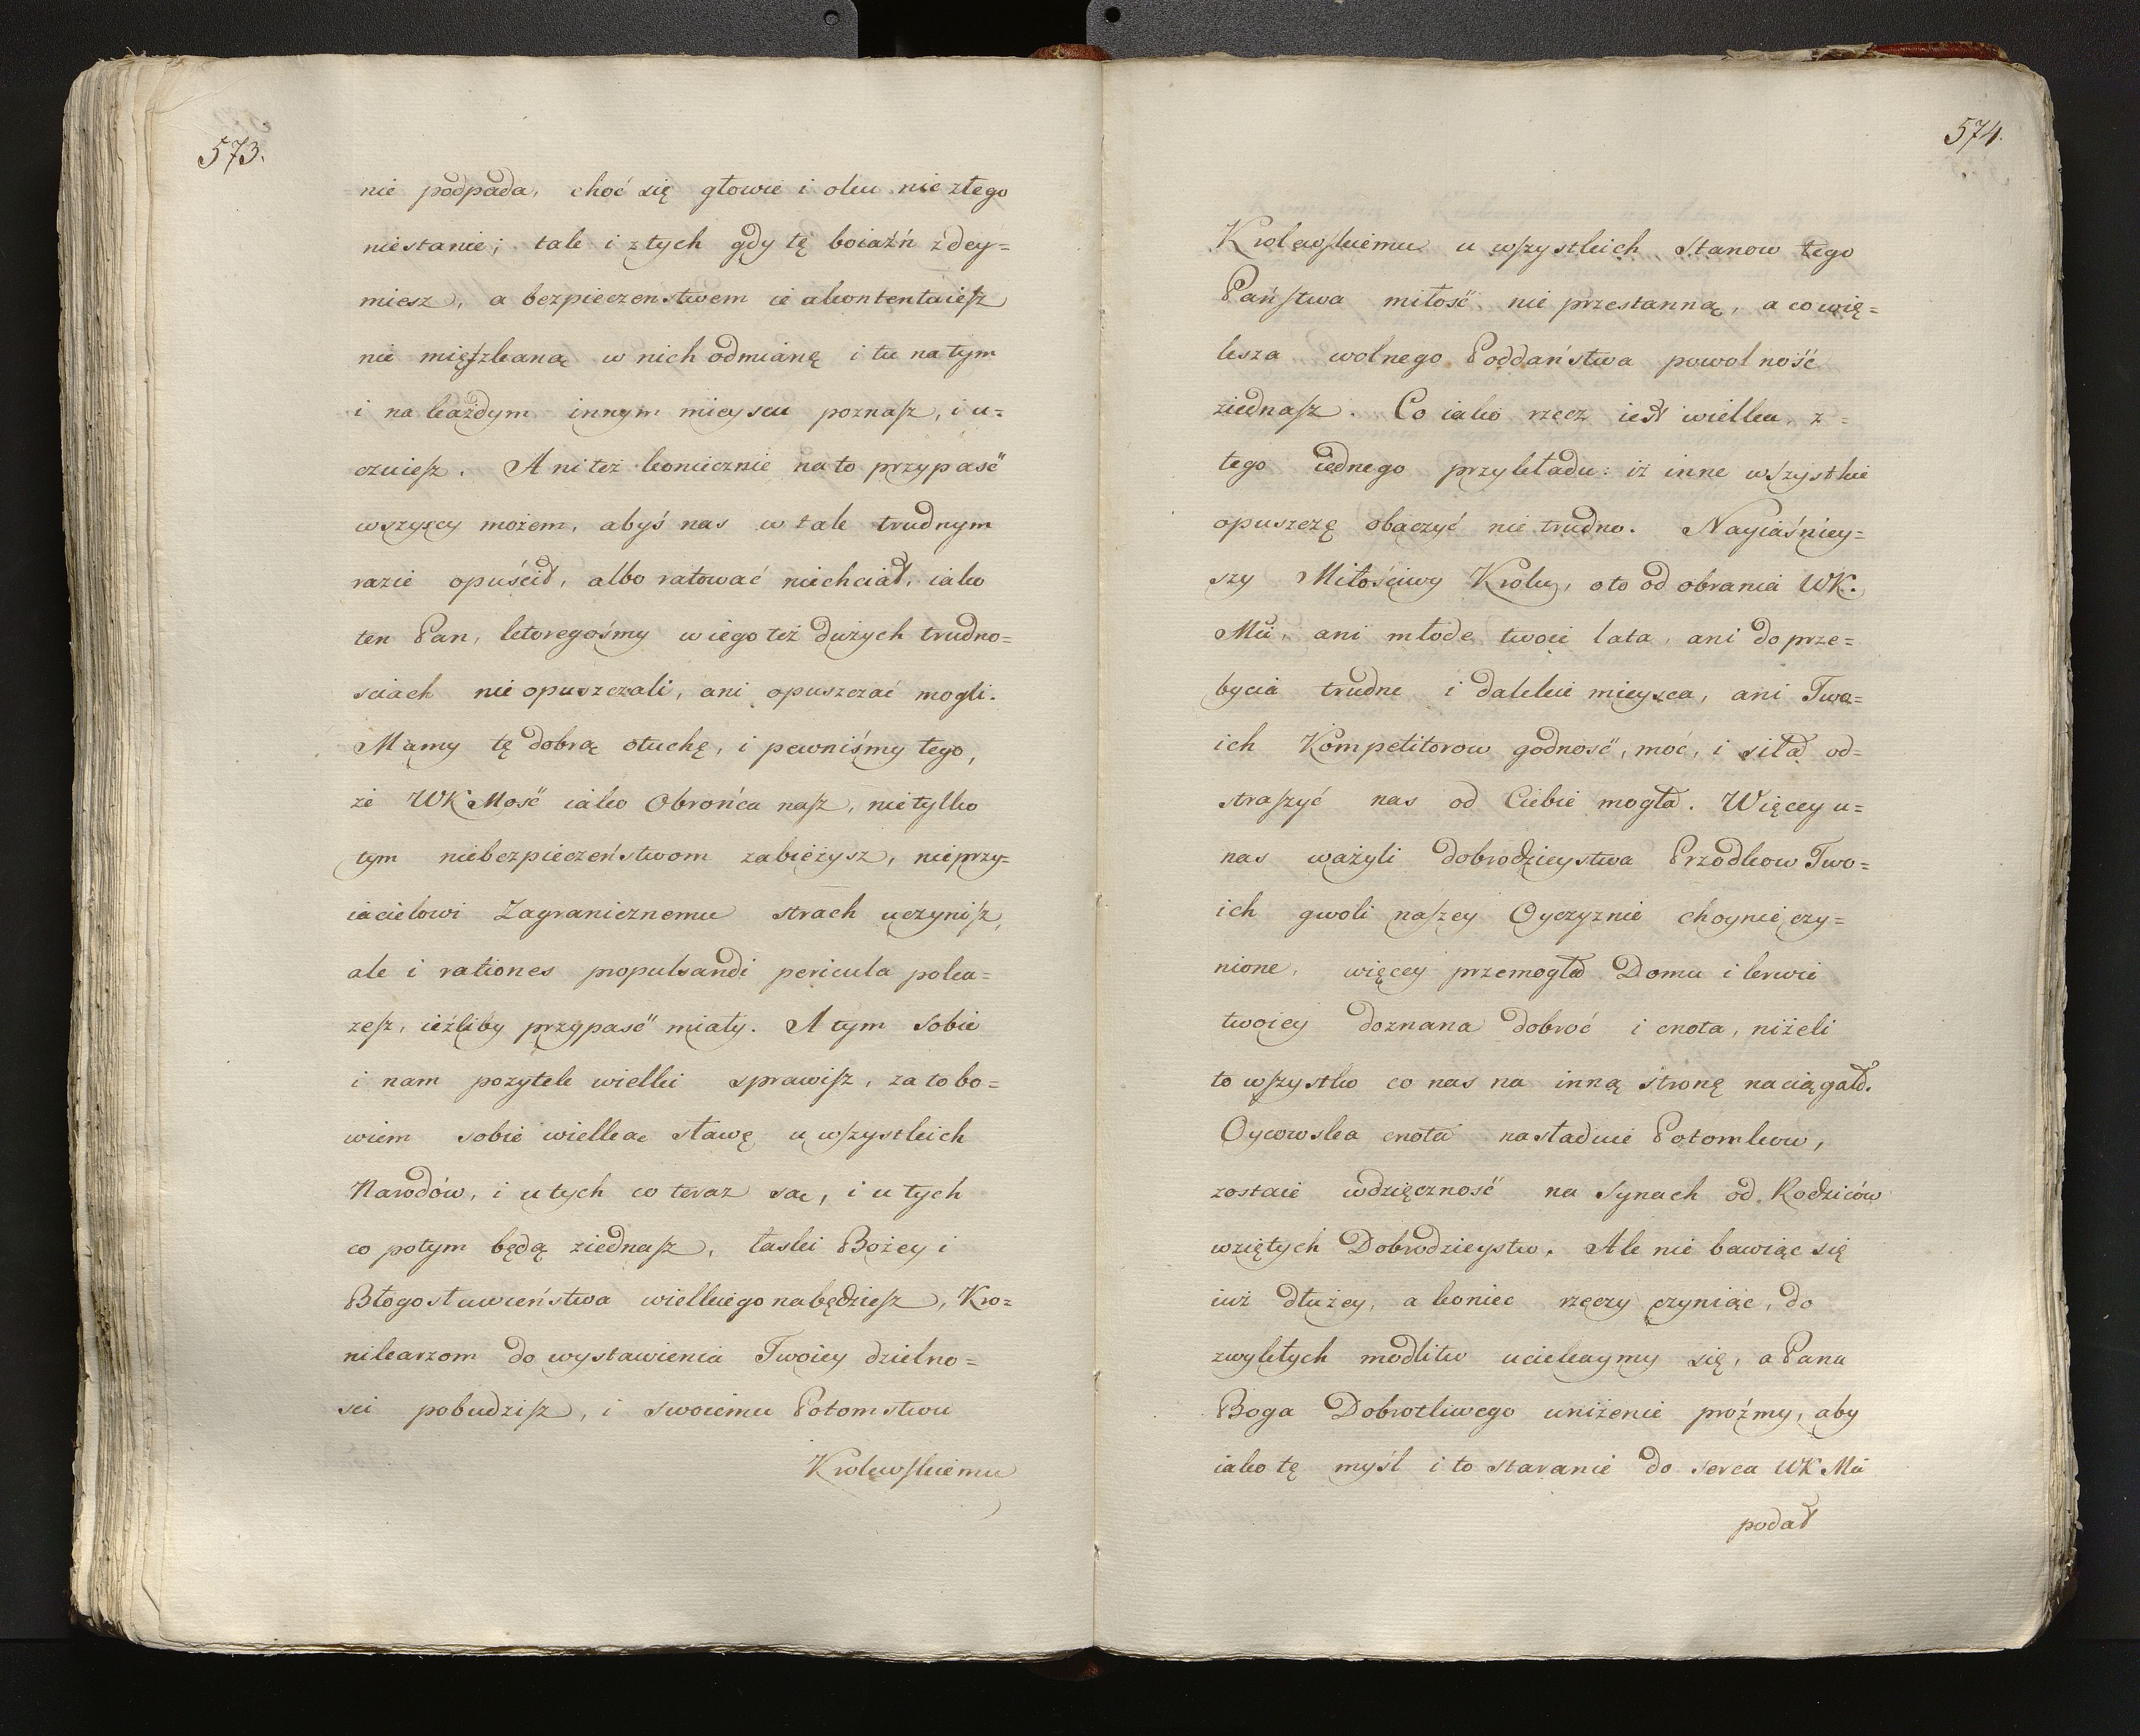 573.
nie podpada, choć się głowie i oku nic złego
niestanie; tak i z tych gdy tę boiaźń zdey=
miesz, a bezpieczeństwem ie akontentuiesz
nie mięszkaną w nich odmianę i tu na tym
i na każdym innym mieyscu poznasz, i u=
czuiesz. Ani też koniecznie na to przypaść
wszyscy możem, abyś nas w tak trudnym
razie opuścił, albo ratować niechciał, iako
ten Pan, któregośmy w iego też dużych trudno=
sciach nie opuszczali, ani opuszczać mogli.
Mamy tę dobrą otuchę, i pewniśmy tego,
że WKMość iako Obrońca nasz, nie tylko
tym niebezpieczeństwom zabieżysz, nieprzy=
iacielowi Zagranicznemu strach uczynisz,
ale i rationes propulsandi pericula poka=
zesz, ieźliby przypaść miały. A tym sobie
i nam pozytek wielki sprawisz, za to bo=
wiem sobie wielką sławę u wszystkich
Narodów, i u tych co teraz są, i u tych
co potym będą ziednasz, łaski Bożey i
Błogosławieństwa wielkiego nabędziesz, Kro=
nikarzom do wystawienia Twoiey dzielno=
sci pobudzisz, i swoiemu Potomstwu
Krolewskiemu
574.
Krolewskiemu u wszystkich Stanow tego
Państwa miłość nie przestanną, a co wię=
ksza wolnego Poddaństwa powolność
ziednasz. Co iako rzecz iest wielka, z=
tego iednego przykładu: iż inne wszystkie
opuszczę obaczyć nie trudno. Nayiaśniey=
szy Miłościwy Krolu, oto od obrania WK.
Mci, ani młode twoie lata, ani do prze=
bycia trudne i dalekie mieysca, ani Two=
ich Kompetitorow godność, moc, i siła od=
straszyć nas od Ciebie mogła. Więcey u=
nas ważyli dobrodzieystwa Przodkow Two=
ich gwoli naszey Oyczyznie choynie czy=
nione, więcey przemogła Domu i krwie
twoiey doznana dobroć i cnota, niżeli
to wszystko co nas na inną stronę naciągało.
Oycowska cnota naśladuie Potomkow,
zostaie wdzięczność na Synach od Rodziców
wziętych Dobrodzieystw. Ale nie bawiąc się
iuż dłużey, a koniec rzeczy czyniąc, do
zwykłych modlitw uciekaymy się, a Pana
Boga Dobrotliwego uniżenie proźmy, aby
iako tę myśl i to staranie do serca WKMci
podał